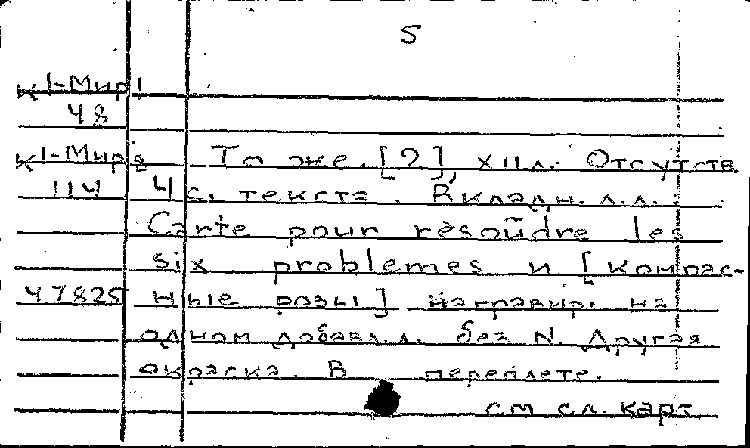 5
К1-Мир1
48
К1-Мир2 То же. [2], XII л. Отсутств.
114 4 с. текста. Вкладн. л.л.:
Carte pour résoûdre les
six problemes и [компас-
47825 ные розы] награвир. на
одном добавл. л. без N. Другая
окраска. В переплете.
см сл. карт.